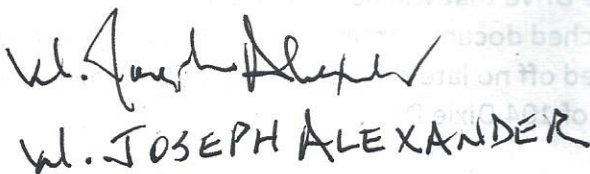 W. Joseph Alexander
W. JOSEPH ALEXANDER